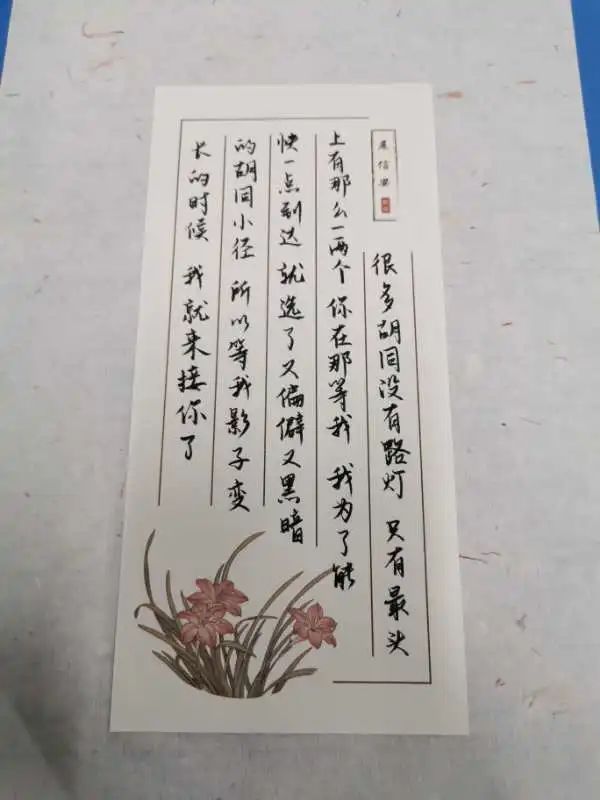 展信安
很多胡同没有路灯 只有最头
上有那么一两个 你在那等我 我为了能
快一点到达 就选了又偏僻又黑暗
的胡同小径 所以等我影子变
长的时候 我就来接你了